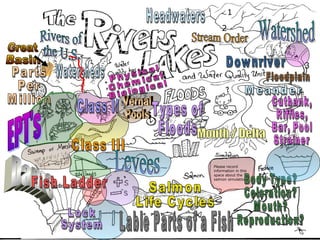 Headwaters
The
Rivers
Lakes
and Water Quality Unit
Stream Order
Watershed
Great
Basin
Rivers of
the U.S.
Watersheds
Parts
Per
Million
Physical
Chemical
Biological
Downriver
Floodplain
Meander
Class V
Vernal
Pools
FLOODS
Types of
Floods
Cutbank,
Riffles,
Bar, Pool
Strainer
EPT's
Mouth / Delta
Class III
Levees
Please record
information in this
space about the
salmon simulation
Salmon
Fish Ladder
Salmon
Life Cycles
Body Type?
Coloration?
Mouth?
Reproduction?
Lock
System
Lable Parts of a Fish